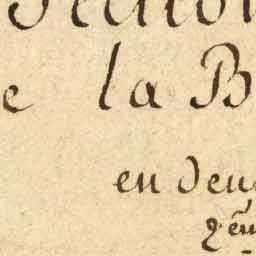 e la B
en deu
2.em